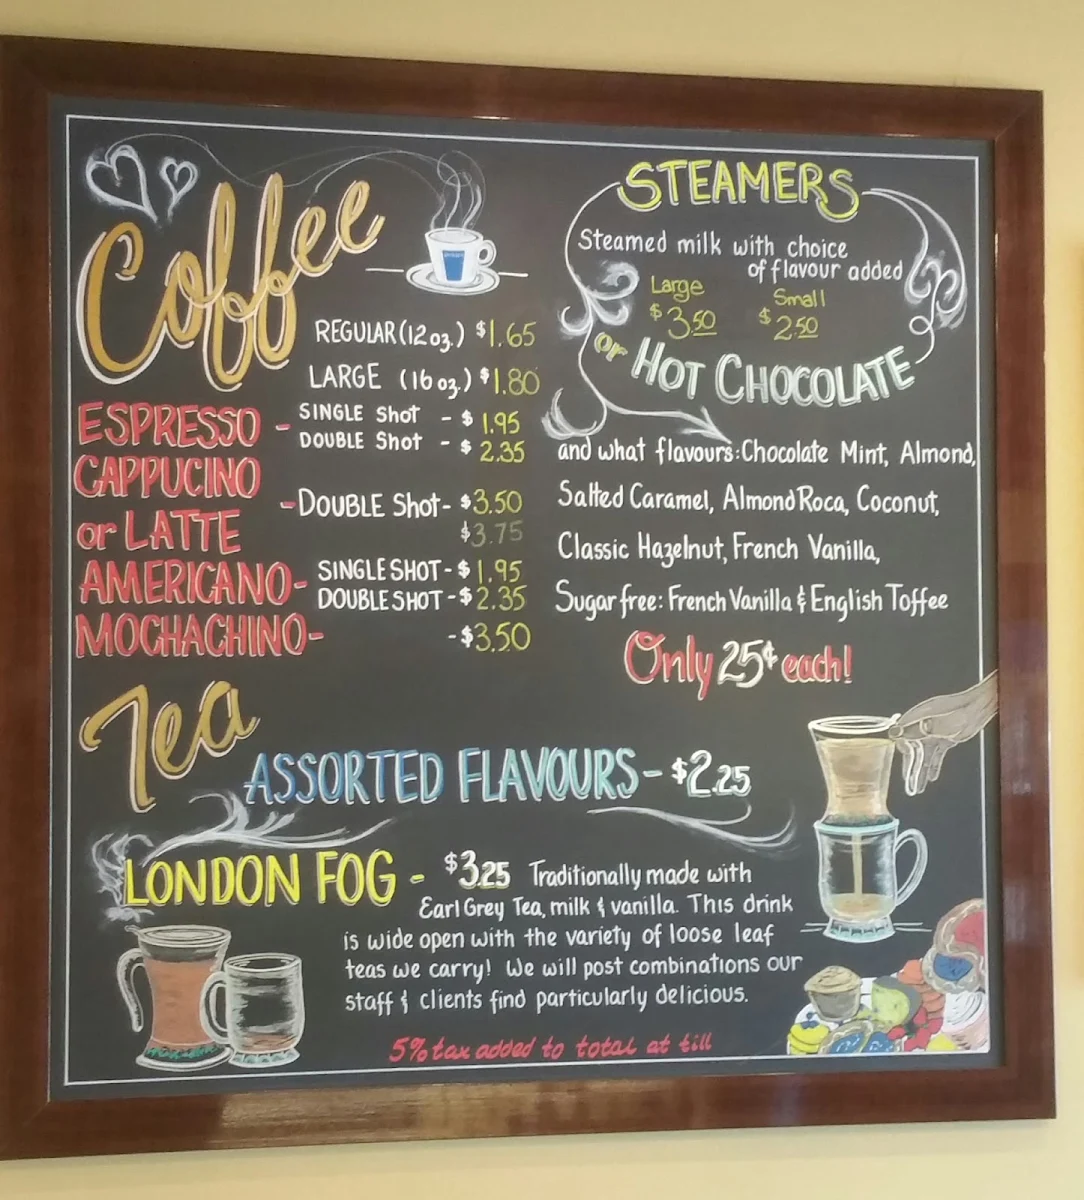 Coffee
REGULAR (12 oz.) $1.65
LARGE (16 oz.) $1.80
ESPRESSO - SINGLE Shot - $1.95
DOUBLE Shot - $2.35
CAPPUCINO
or LATTE
- DOUBLE Shot - $3.50
$3.75
AMERICANO - SINGLE SHOT - $1.95
DOUBLE SHOT - $2.35
MOCHACHINO - - $3.50
STEAMERS
Steamed milk with choice
of flavour added
Large Small
$3.50 $2.50
or HOT CHOCOLATE
and what flavours: Chocolate Mint, Almond,
Salted Caramel, Almond Roca, Coconut,
Classic Hazelnut, French Vanilla,
Sugar free: French Vanilla & English Toffee
Only 25¢ each!
Tea
ASSORTED FLAVOURS - $2.25
LONDON FOG - $3.25 Traditionally made with
Earl Grey Tea, milk & vanilla. This drink
is wide open with the variety of loose leaf
teas we carry! We will post combinations our
staff & clients find particularly delicious.
5% tax added to total at till